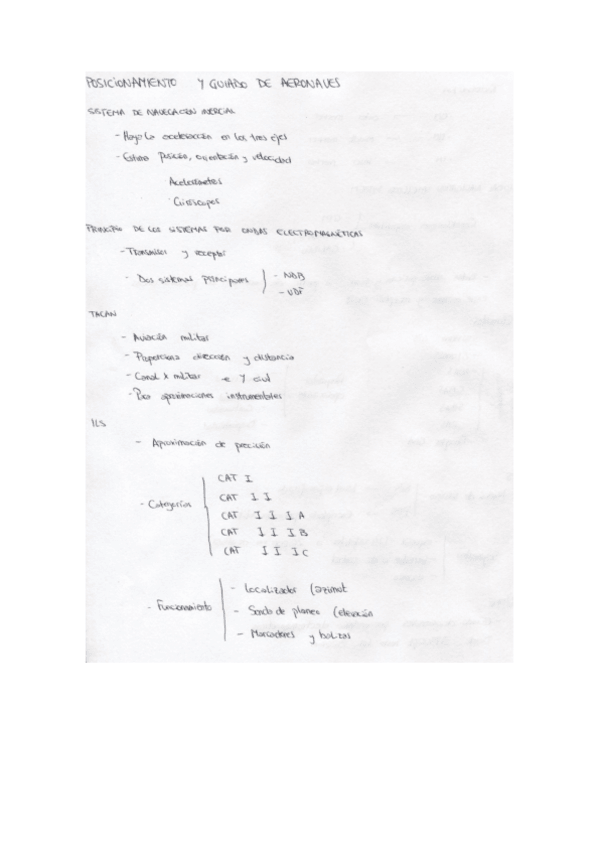 POSICIONAMIENTO Y GUIADO DE AERONAVES
SISTEMA DE NAVEGACION INERCIAL
- la aceleración en los tres ejes
- posición, orientación y velocidad
Acelerómetros
Giroscopos
PRINCIPIO DE LOS SISTEMAS POR ONDAS ELECTROMAGNÉTICAS
- Transmisor y receptor
- Dos sistemas principales
- NDB
TACAN
- Aviación militar
- Proporciona dirección y distancia
- Canal X militar e Y civil
- Por aproximaciones instrumentales
ILS
- Aproximación de precisión
- Categorías
CAT I
CAT I I
CAT I I I A
CAT I I I B
CAT I I I C
- Funcionamiento
- Localizador (azimut
- Senda de planeo (elevación
- Marcadores y balizas